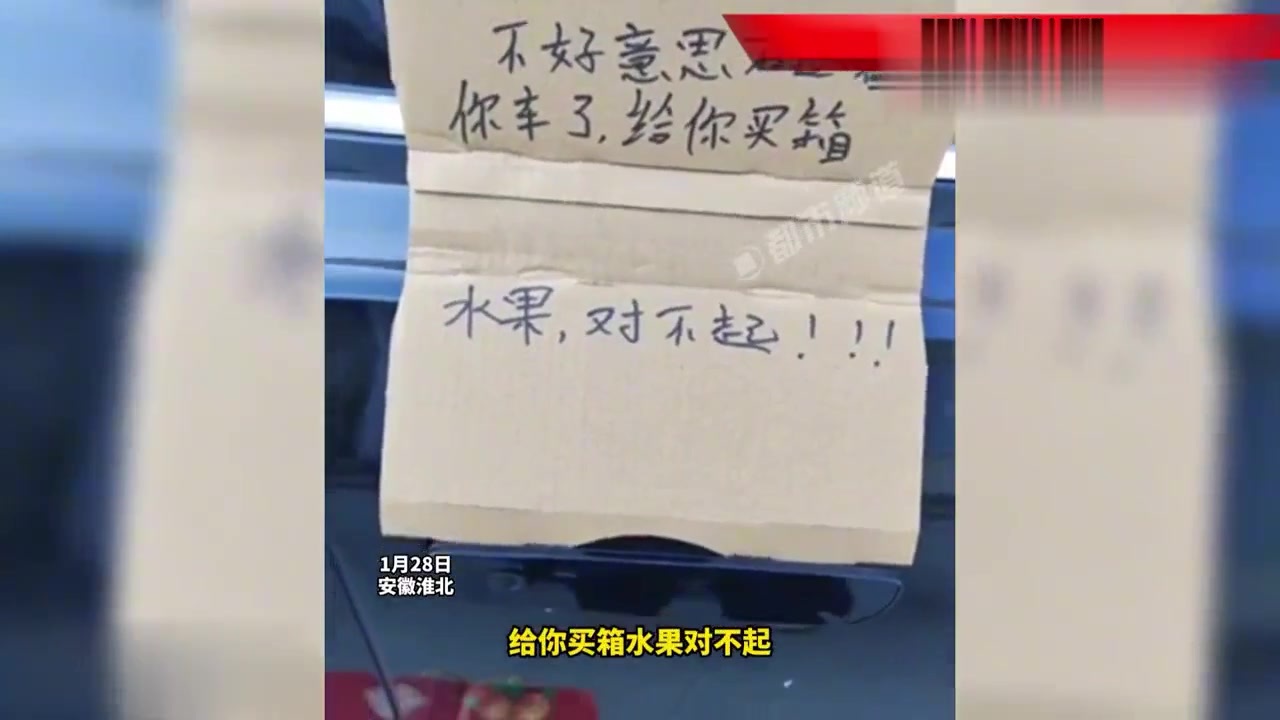 不好意思
你车了,给你买箱
都市频道
水果,对不起!!!
1月28日
安徽淮北
给你买箱水果对不起